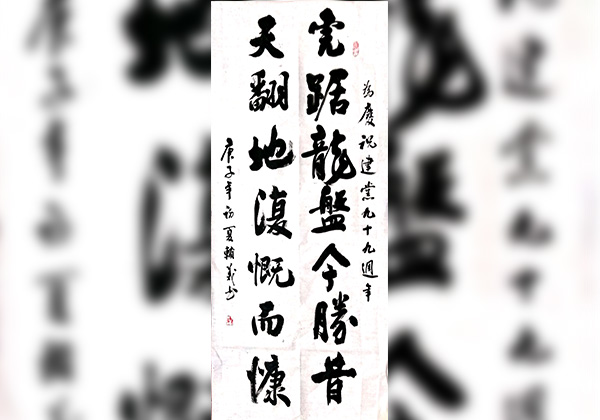 為慶祝建黨九十九週年
虎踞龍盤今勝昔
天翻地復慨而慷
庚子年初夏書